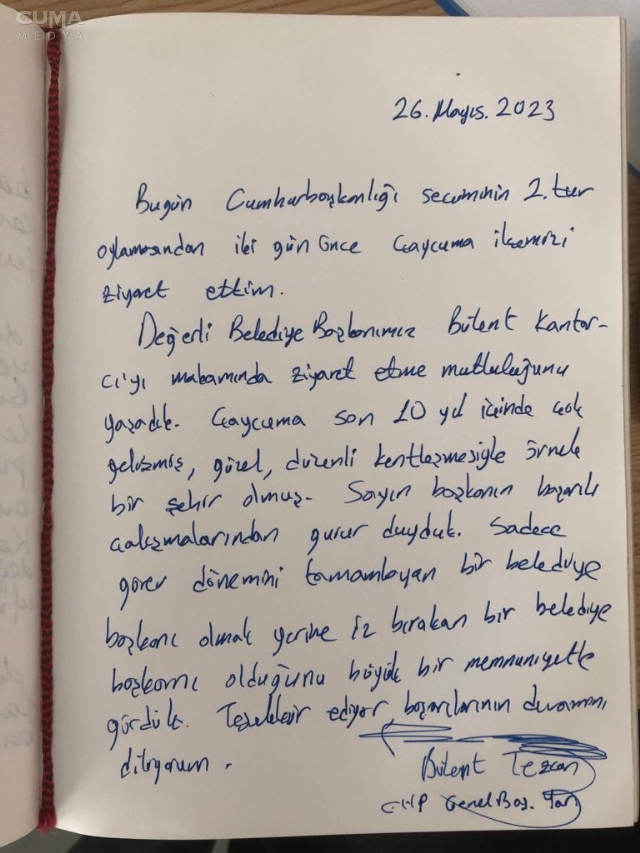 CUMA
MEDYA
26. Mayıs. 2023
Bugün Cumhurbaşkanlığı seçiminin 2. tur
oylamasından iki gün önce Çaycuma ilçemizi
ziyaret ettim.
Değerli Belediye Başkanımız Bülent Kantar-
cı'yı makamında ziyaret etme mutluluğunu
yaşadık. Çaycuma son 10 yıl içinde çok
gelişmiş, güzel, düzenli kentleşmesiyle örnek
bir şehir olmuş. Sayın başkanın başarılı
çalışmalarından gurur duyduk. Sadece
görev dönemini tamamlayan bir belediye
başkanı olmak yerine iz bırakan bir belediye
başkanı olduğunu büyük bir memnuniyetle
gördük. Teşekkür ediyor başarılarının devamını
diliyorum.
Bülent Tezcan
CHP Genel Baş. Yar